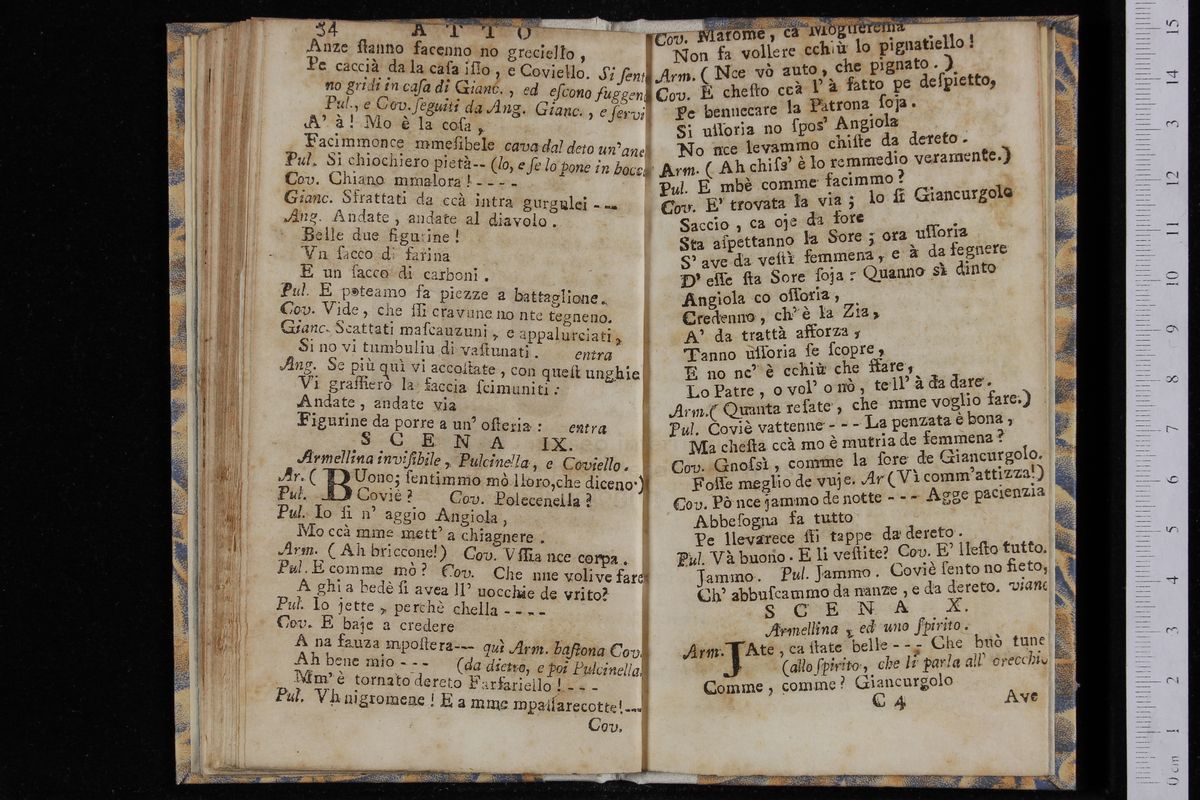 34 ATTO
Anze ſtanno facenno no greciello,
Pe caccià da la caſa iſſo, e Coviello. Si ſent
no gridi in caſa di Gianc., ed eſcono fuggen
Pul., e Cov. ſeguiti da Ang. Gianc., e ſervi
A' à! Mo è la coſa,
Facimmonce mmeſibele cava dal deto un'ane
Pul. Si chiochiero pietà-- (lo, e ſe lo pone in bocca
Cov. Chiano mmalora! ----
Gianc. Sfrattati da ccà intra gurgulei ---
Ang. Andate, andate al diavolo.
Belle due figurine!
Vn ſacco di farina
E un ſacco di carboni.
Pul. E poteamo fa piezze a battaglione.
Cov. Vide, che ſſi cravune no nte tegneno.
Gianc. Scattati maſcauzuni, e appalurciati,
Si no vi tumbuliu di vaſtunati. entra
Ang. Se più quì vi accoſtate, con queſt unghie
Vi graffierò la faccia ſcimuniti:
Andate, andate via
Figurine da porre a un' oſteria: entra
SCENA IX.
Armellina inviſibile, Pulcinella, e Coviello.
Ar. (BUono; ſentimmo mò lloro, che diceno.)
Pul. Coviè? Cov. Polecenella?
Pul. Io ſi n' aggio Angiola,
Mo ccà mme mett' a chiagnere.
Arm. (Ah briccone!) Cov. Vſſia nce corpa.
Pul. E comme mò? Cov. Che mne volive fare
A ghi a bedè ſi avea ll' uocchie de vrito?
Pul. Io jette, perchè chella ----
Cov. E baje a credere
A na fauza mpoſtera--- quì Arm. baſtona Cov.
Ah bene mio --- (da dietro, e poi Pulcinella.
Mm' è tornato dereto Farfariello! ---
Pul. Vh nigromene! E a mme mpaſſarecotte!---
Cov.
Cov. Marome, ca Moglierema
Non fa vollere cchiù lo pignatiello!
Arm. (Nce vò auto, che pignato.)
Cov. E cheſto ccà l' à fatto pe deſpietto,
Pe bennecare la Patrona ſoja.
Si uſſoria no ſpos' Angiola
No nce levammo chiſte da dereto.
Arm. (Ah chiſs' è lo remmedio veramente.)
Pul. E mbè comme facimmo?
Cov. E' trovata la via; lo ſi Giancurgolo
Saccio, ca oje da fore
Sta aſpettanno la Sore; ora uſſoria
S' ave da veſtì femmena, e à da fegnere
D' eſſe ſta Sore ſoja: Quanno sì dinto
Angiola co oſſoria,
Credenno, ch' è la Zia,
A' da trattà afforza,
Tanno uſſoria ſe ſcopre,
E no nc' è cchiù che ſtare,
Lo Patre, o vol' o nò, te ll' à da dare.
Arm. (Quanta reſate, che mme voglio fare.)
Pul. Coviè vattenne --- La penzata è bona,
Ma cheſta ccà mo è mutria de femmena?
Cov. Gnoſsì, comme la ſore de Giancurgolo.
Foſſe meglio de vuje. Ar (Vì comm' attizza!)
Cov. Pò nce jammo de notte --- Agge pacienzia
Abbeſogna fa tutto
Pe llevarece ſti tappe da dereto.
Pul. Và buono. E li veſtite? Cov. E' lleſto tutto.
Jammo. Pul. Jammo. Coviè ſento no fieto,
Ch' abbuſcammo da nanze, e da dereto. viane
SCENA X.
Armellina, ed uno ſpirito.
Arm. JAte, ca ſtate belle --- Che buò tune
(allo ſpirito, che li parla all' orecchio
Comme, comme? Giancurgolo
C 4 Ave
15
14
13
12
11
10
9
8
7
6
5
4
3
2
1
0 cm